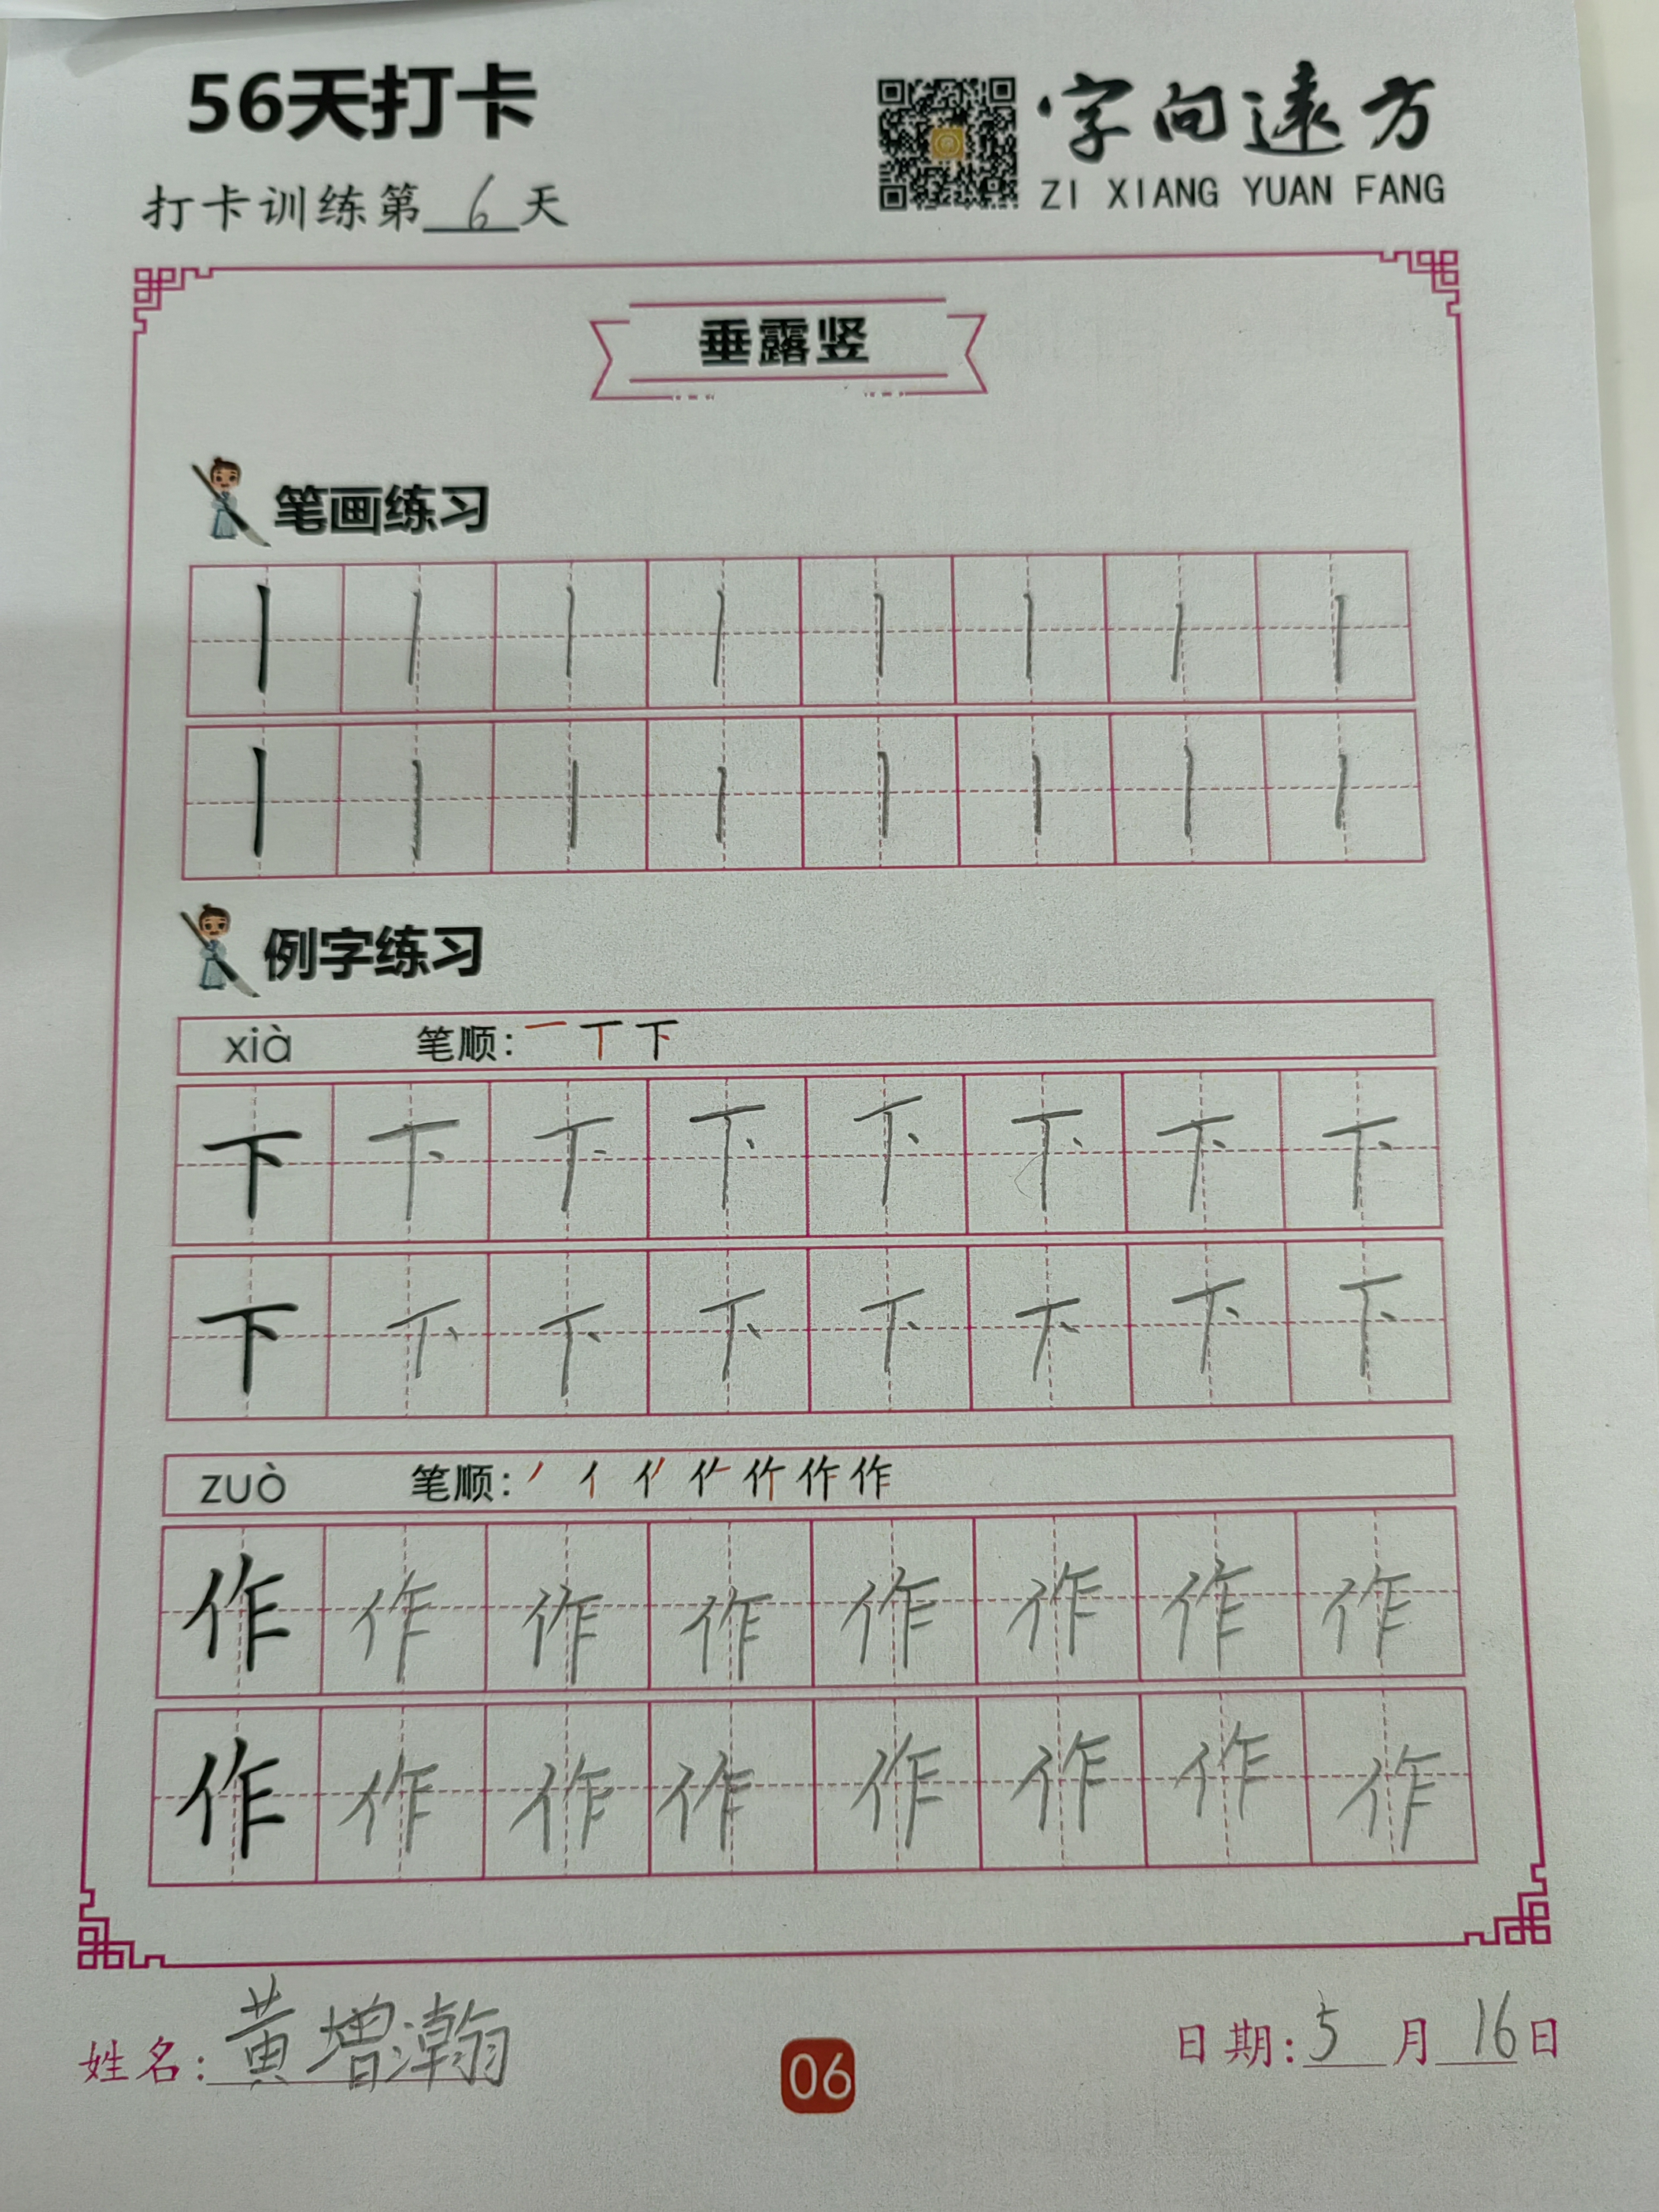 56天打卡
字向遠方
ZI XIANG YUAN FANG
打卡训练第6天
垂露竖
笔画练习
丨丨丨丨丨丨丨丨
丨丨丨丨丨丨丨丨
例字练习
xià 笔顺：一丅下
下下下下下下下下
下下下下下下下下
zuò 笔顺：丿亻作
作作作作作作作作
作作作作作作作作
姓名：黄增瀚
06
日期：5月16日